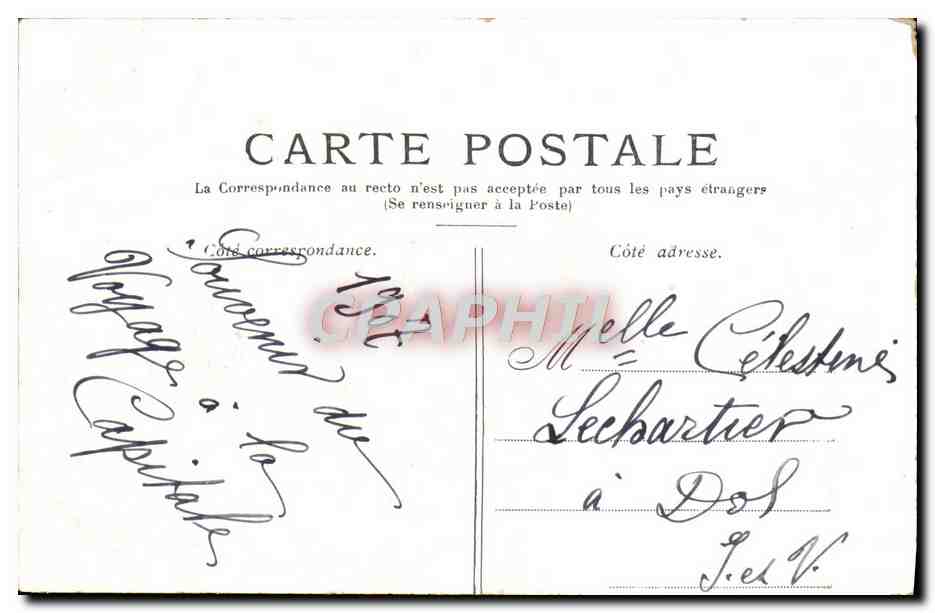 CARTE POSTALE
La Correspondance au recto n'est pas acceptée par tous les pays étrangers
(Se renseigner à la Poste)
Côté correspondance.
Côté adresse.
Souvenir du
Voyage à la
Capitale
CPAPHIL
Melle Célestine
Lechartier
à Dol
I. et V.